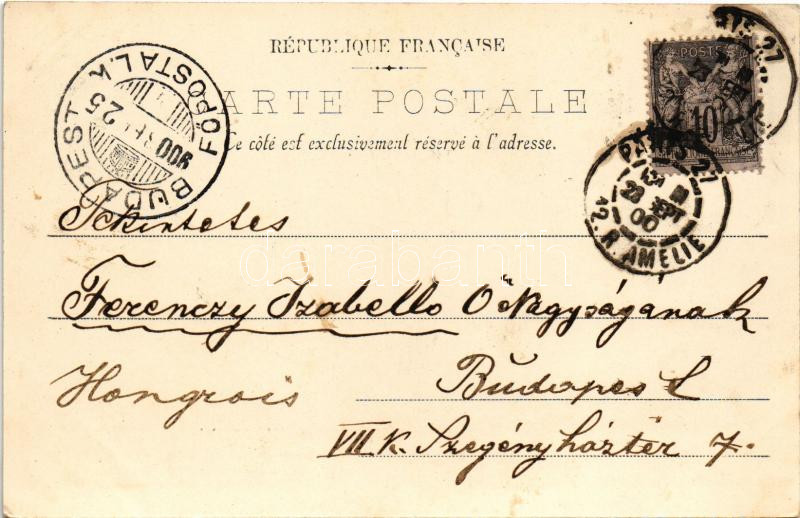 RÉPUBLIQUE FRANÇAISE
CARTE POSTALE
Ce côté est exclusivement réservé à l'adresse.
BUDAPEST FŐPOSTAI.K
900 25
POSTE
10
PARIS 27
22 SEPT 00
12. R. AMELIE
Tekintetes
Ferenczy Izabella Ő Nagyságának
Hongrois
Budapest
VII. K. Szegényháztér 7.
darabanth